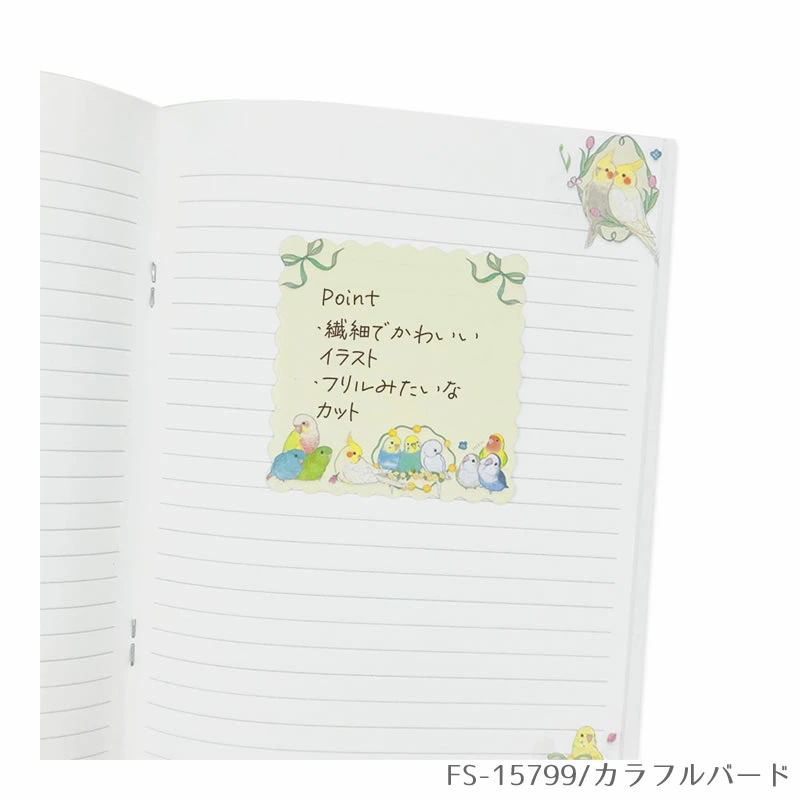 Point
・繊細でかわいい
イラスト
・フリルみたいな
カット
FS-15799/カラフルバード